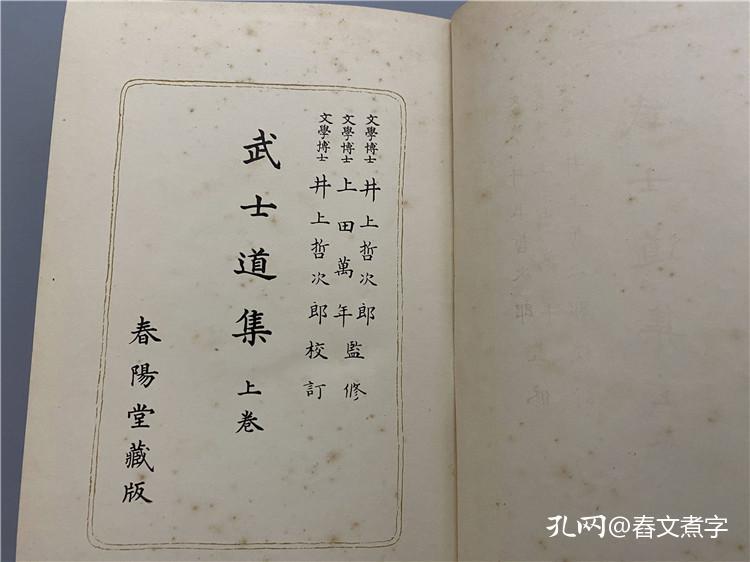 文學博士 井上哲次郎
文學博士 上田萬年 監修
文學博士 井上哲次郎 校訂
武士道集 上卷
春陽堂藏版
孔网@舂文煮字